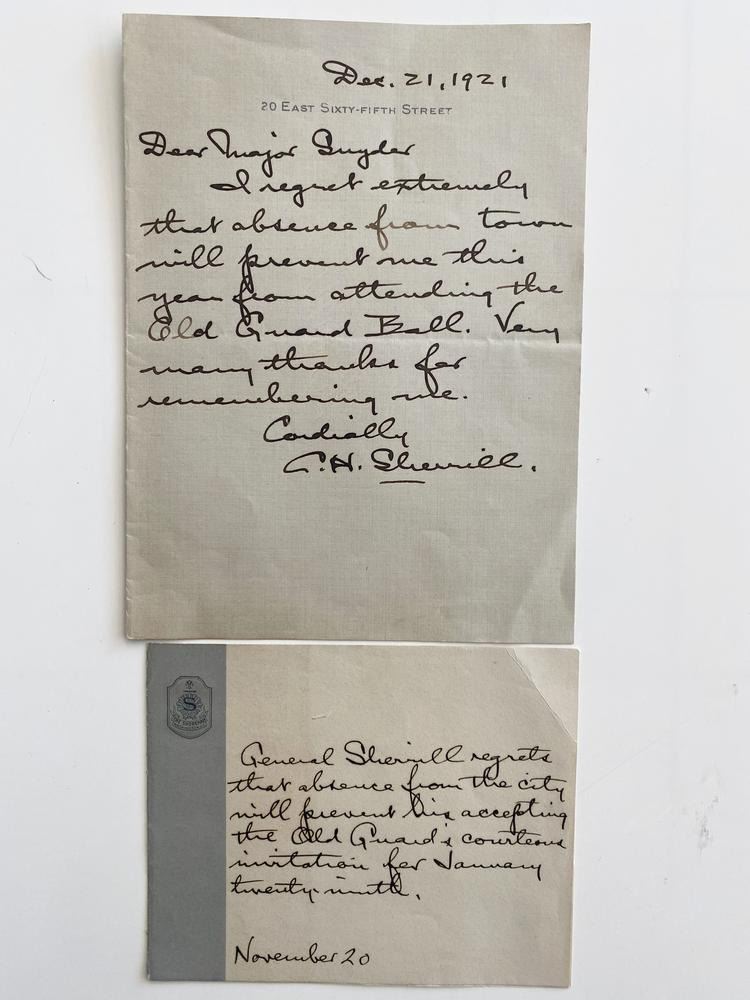 Dec. 21, 1921
20 EAST SIXTY-FIFTH STREET
Dear Major Snyder
I regret extremely
that absence from town
will prevent me this
year from attending the
Old Guard Ball. Very
many thanks for
remembering me.
Cordially
C.H. Sherrill.
S
General Sherrill regrets
that absence from the city
will prevent his accepting
the Old Guard's courteous
invitation for January
twenty-ninth.
November 20